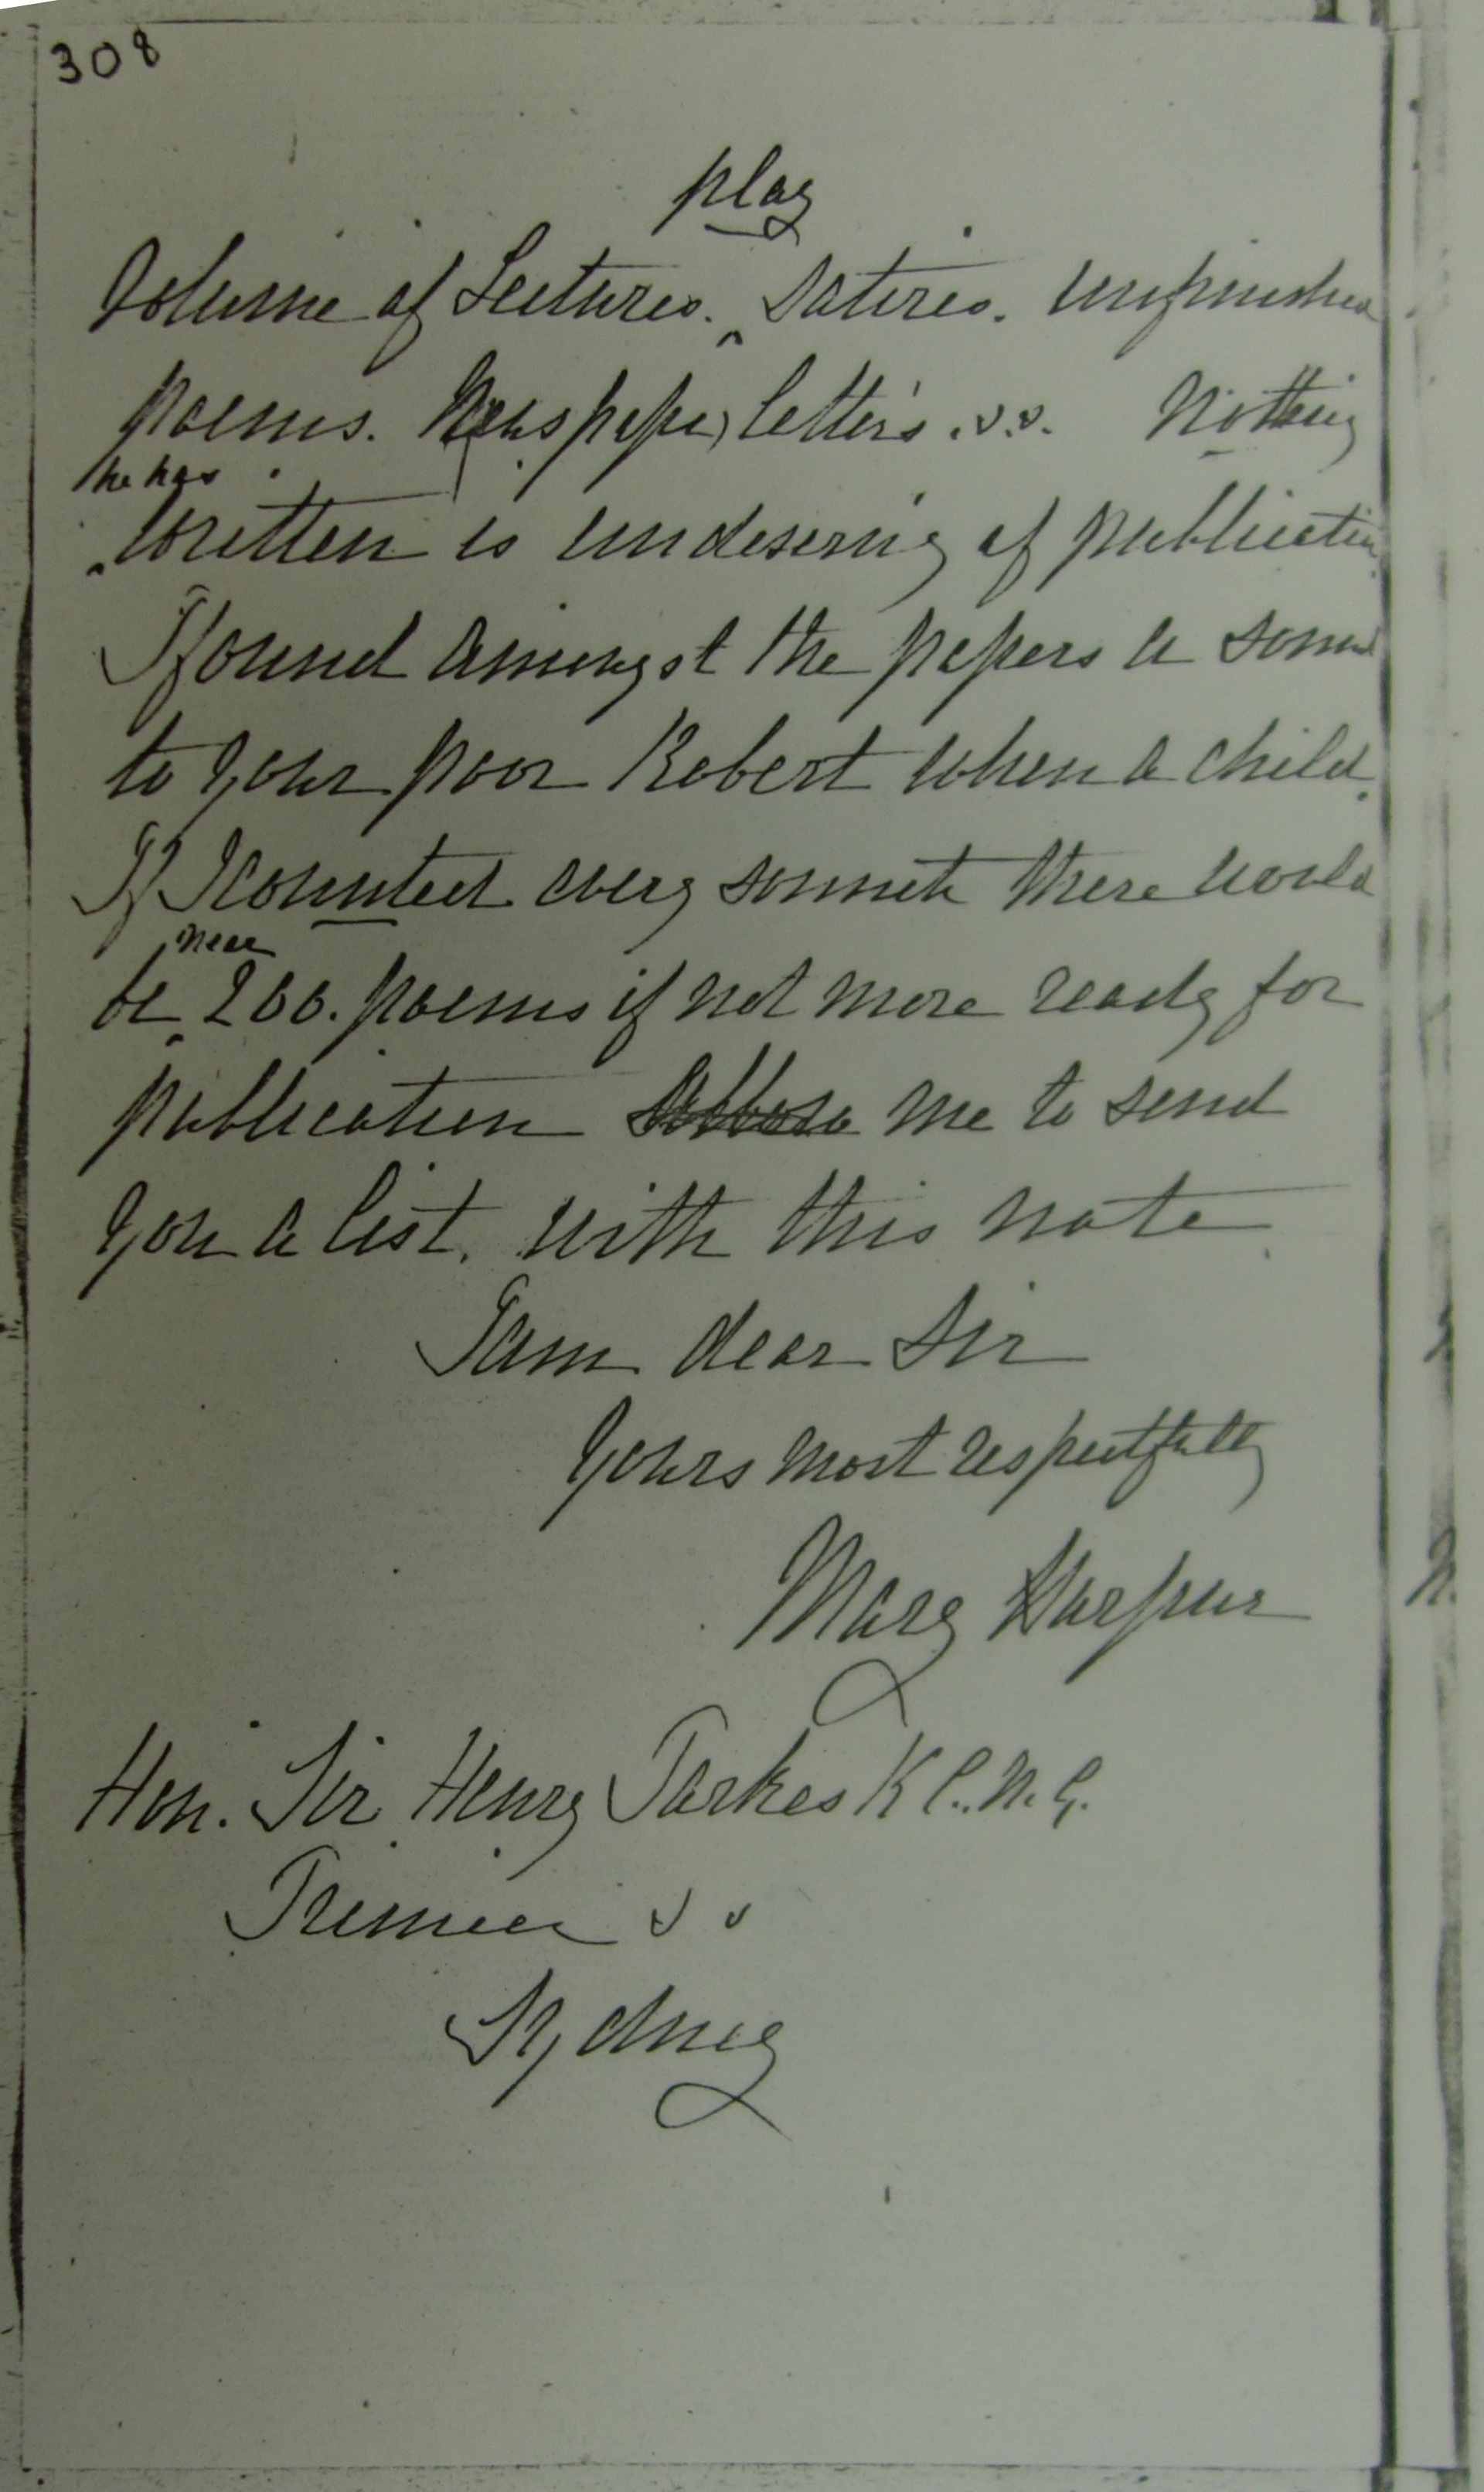 308
play
Volume of Lectures. Satires. unfinished
poems. Newspaper letters. &&. Nothing
he has
written is undeserving of publication
I found amongst the papers a sonnet
to your poor Robert when a child.
If I counted every sonnet there would
near
be 200. poems if not more ready for
publication me to send
you a list. with this note
I am dear Sir
Yours most respectfully
Mary Harpur
Hon. Sir Henry Parkes K C.M.G.
Premier &&
Sydney